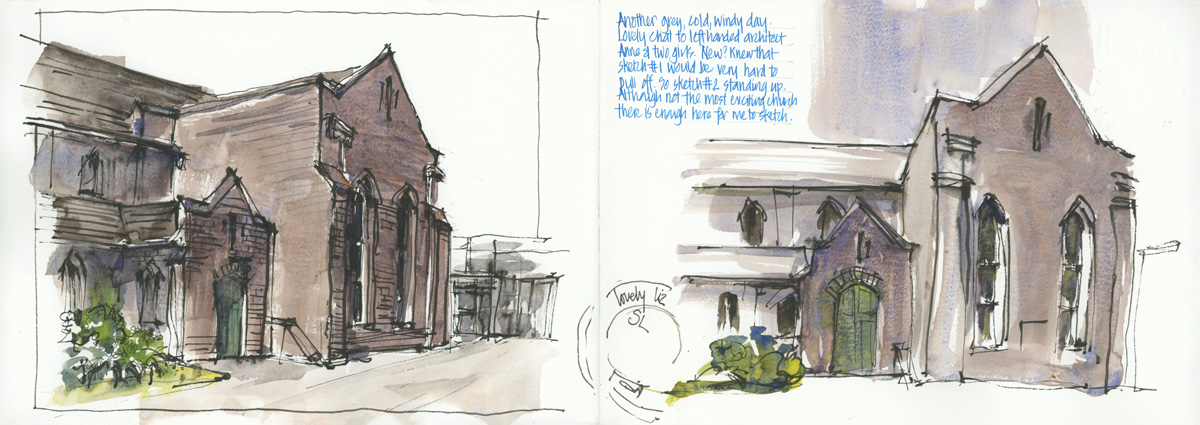 Another grey, cold, windy day.
Lovely chat to left handed architect
Anne & two girls. New? Knew that
sketch #1 would be very hard to
pull off. So sketch #2 standing up.
Although not the most exciting church
there is enough here for me to sketch.
Lovely Liz
SL